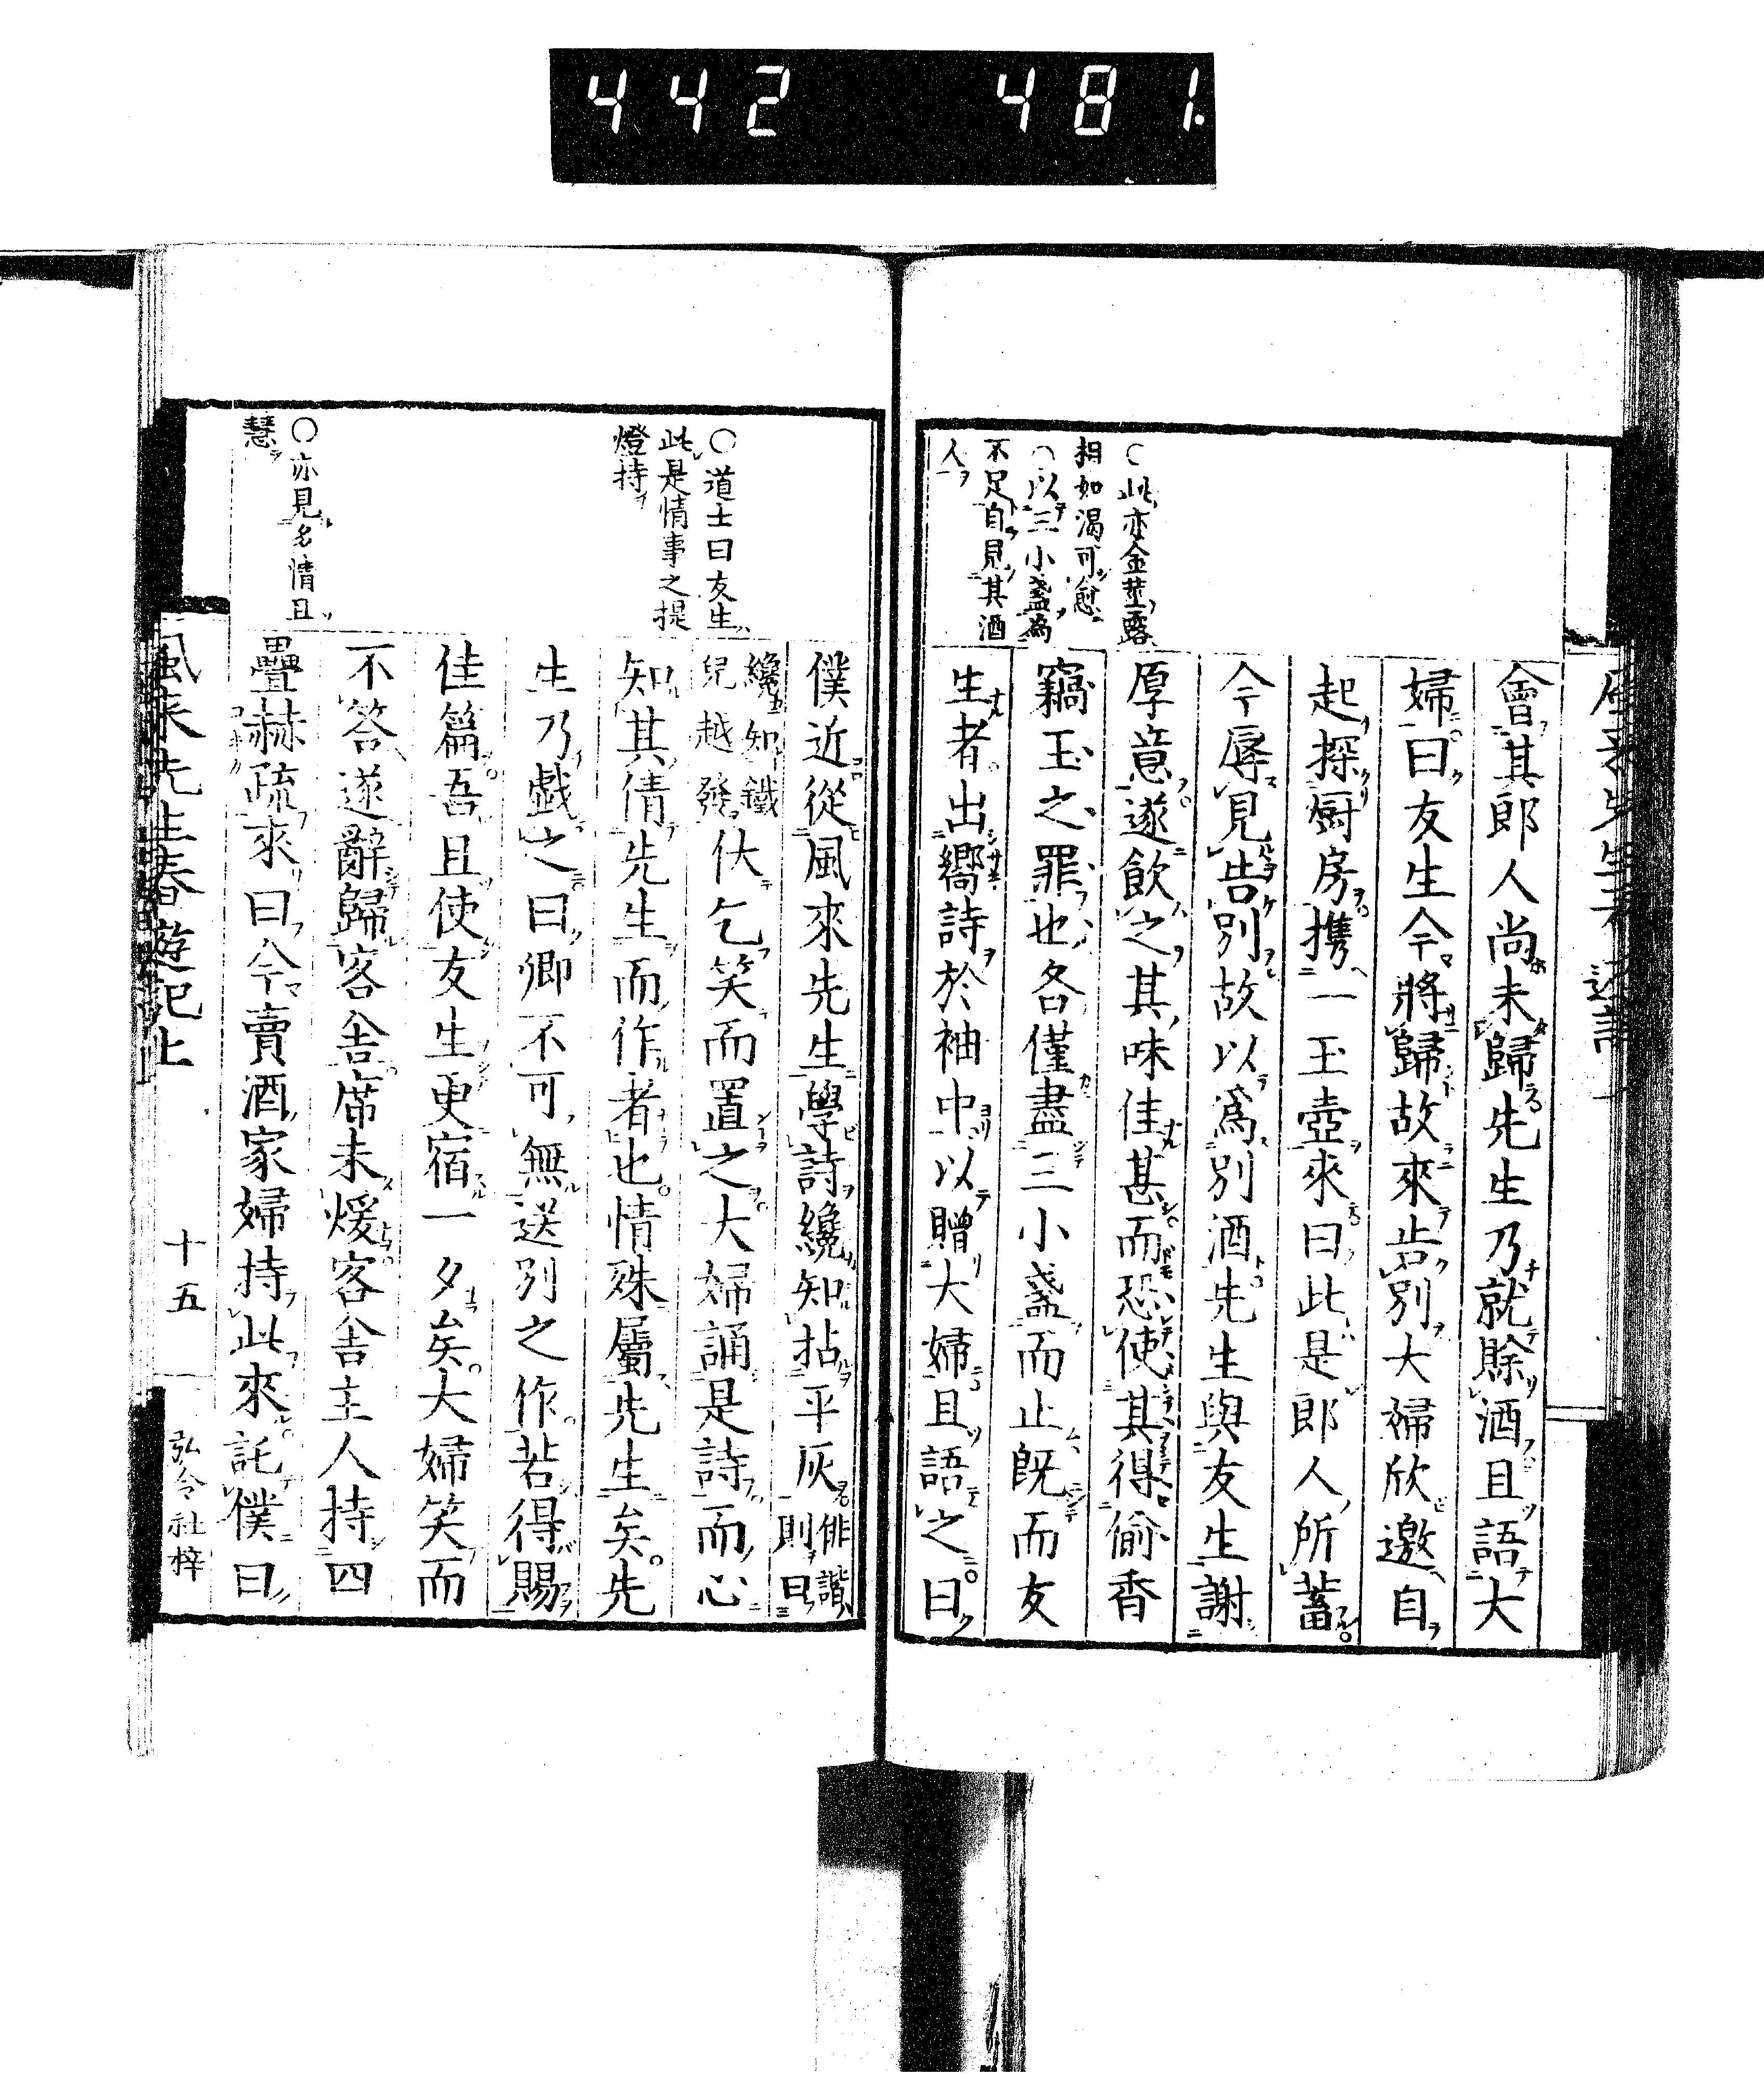 442 481.
○此亦金莖露
相如渴可愈
○以三小盞為
不足自見其酒
人
會其郎人尚未歸先生乃就賖酒且語大
婦曰友生今將歸故來告別大婦欣邀自
起探厨房携一玉壺來曰此是郎人所蓄
今辱見告別故以爲別酒先生與友生謝
厚意遂飲之其味佳甚而恐使其得偷香
竊玉之罪也各僅盡三小盞而止既而友
生者出嚮詩於袖中以贈大婦且語之曰
○道士曰友生
此是情事之提
燈持
○亦見多情且
慧
僕近從風來先生學詩纔知拈平灰俳諧則曰
纔知鐵兒越發伏乞笑而置之大婦誦是詩而心
知其倩先生而作者也情殊屬先生矣先
生乃戯之曰卿不可無送別之作若得賜
佳篇吾且使友生更宿一夕矣大婦笑而
不答遂辭歸客舍席未煖客舍主人持四
疊赫疏來曰今賣酒家婦持此來託僕曰
風來先生春遊記上 十五 弘令社梓